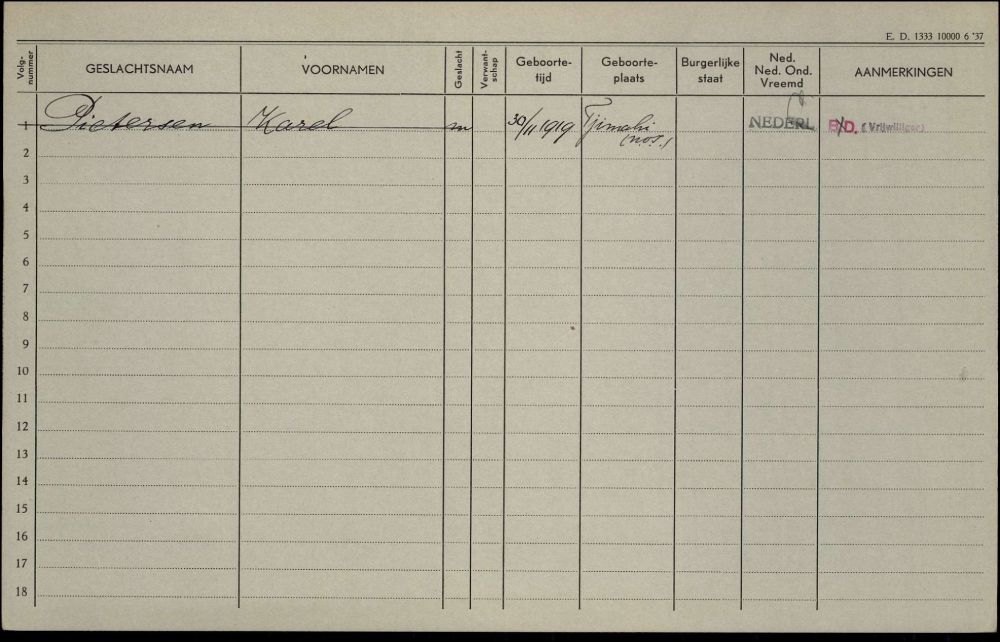 E. D. 1333 10000 6 '37
Volg-nummer GESLACHTSNAAM VOORNAMEN Geslacht Verwant-schap Geboorte-tijd Geboorte-plaats Burgerlijke staat Ned. Ned. Ond. Vreemd AANMERKINGEN
1 Pietersen Karel m 30/11 1919 Tjimahi NEDERL. D. (Vrijwilliger)
(NOI.)
2
3
4
5
6
7
8
9
10
11
12
13
14
15
16
17
18